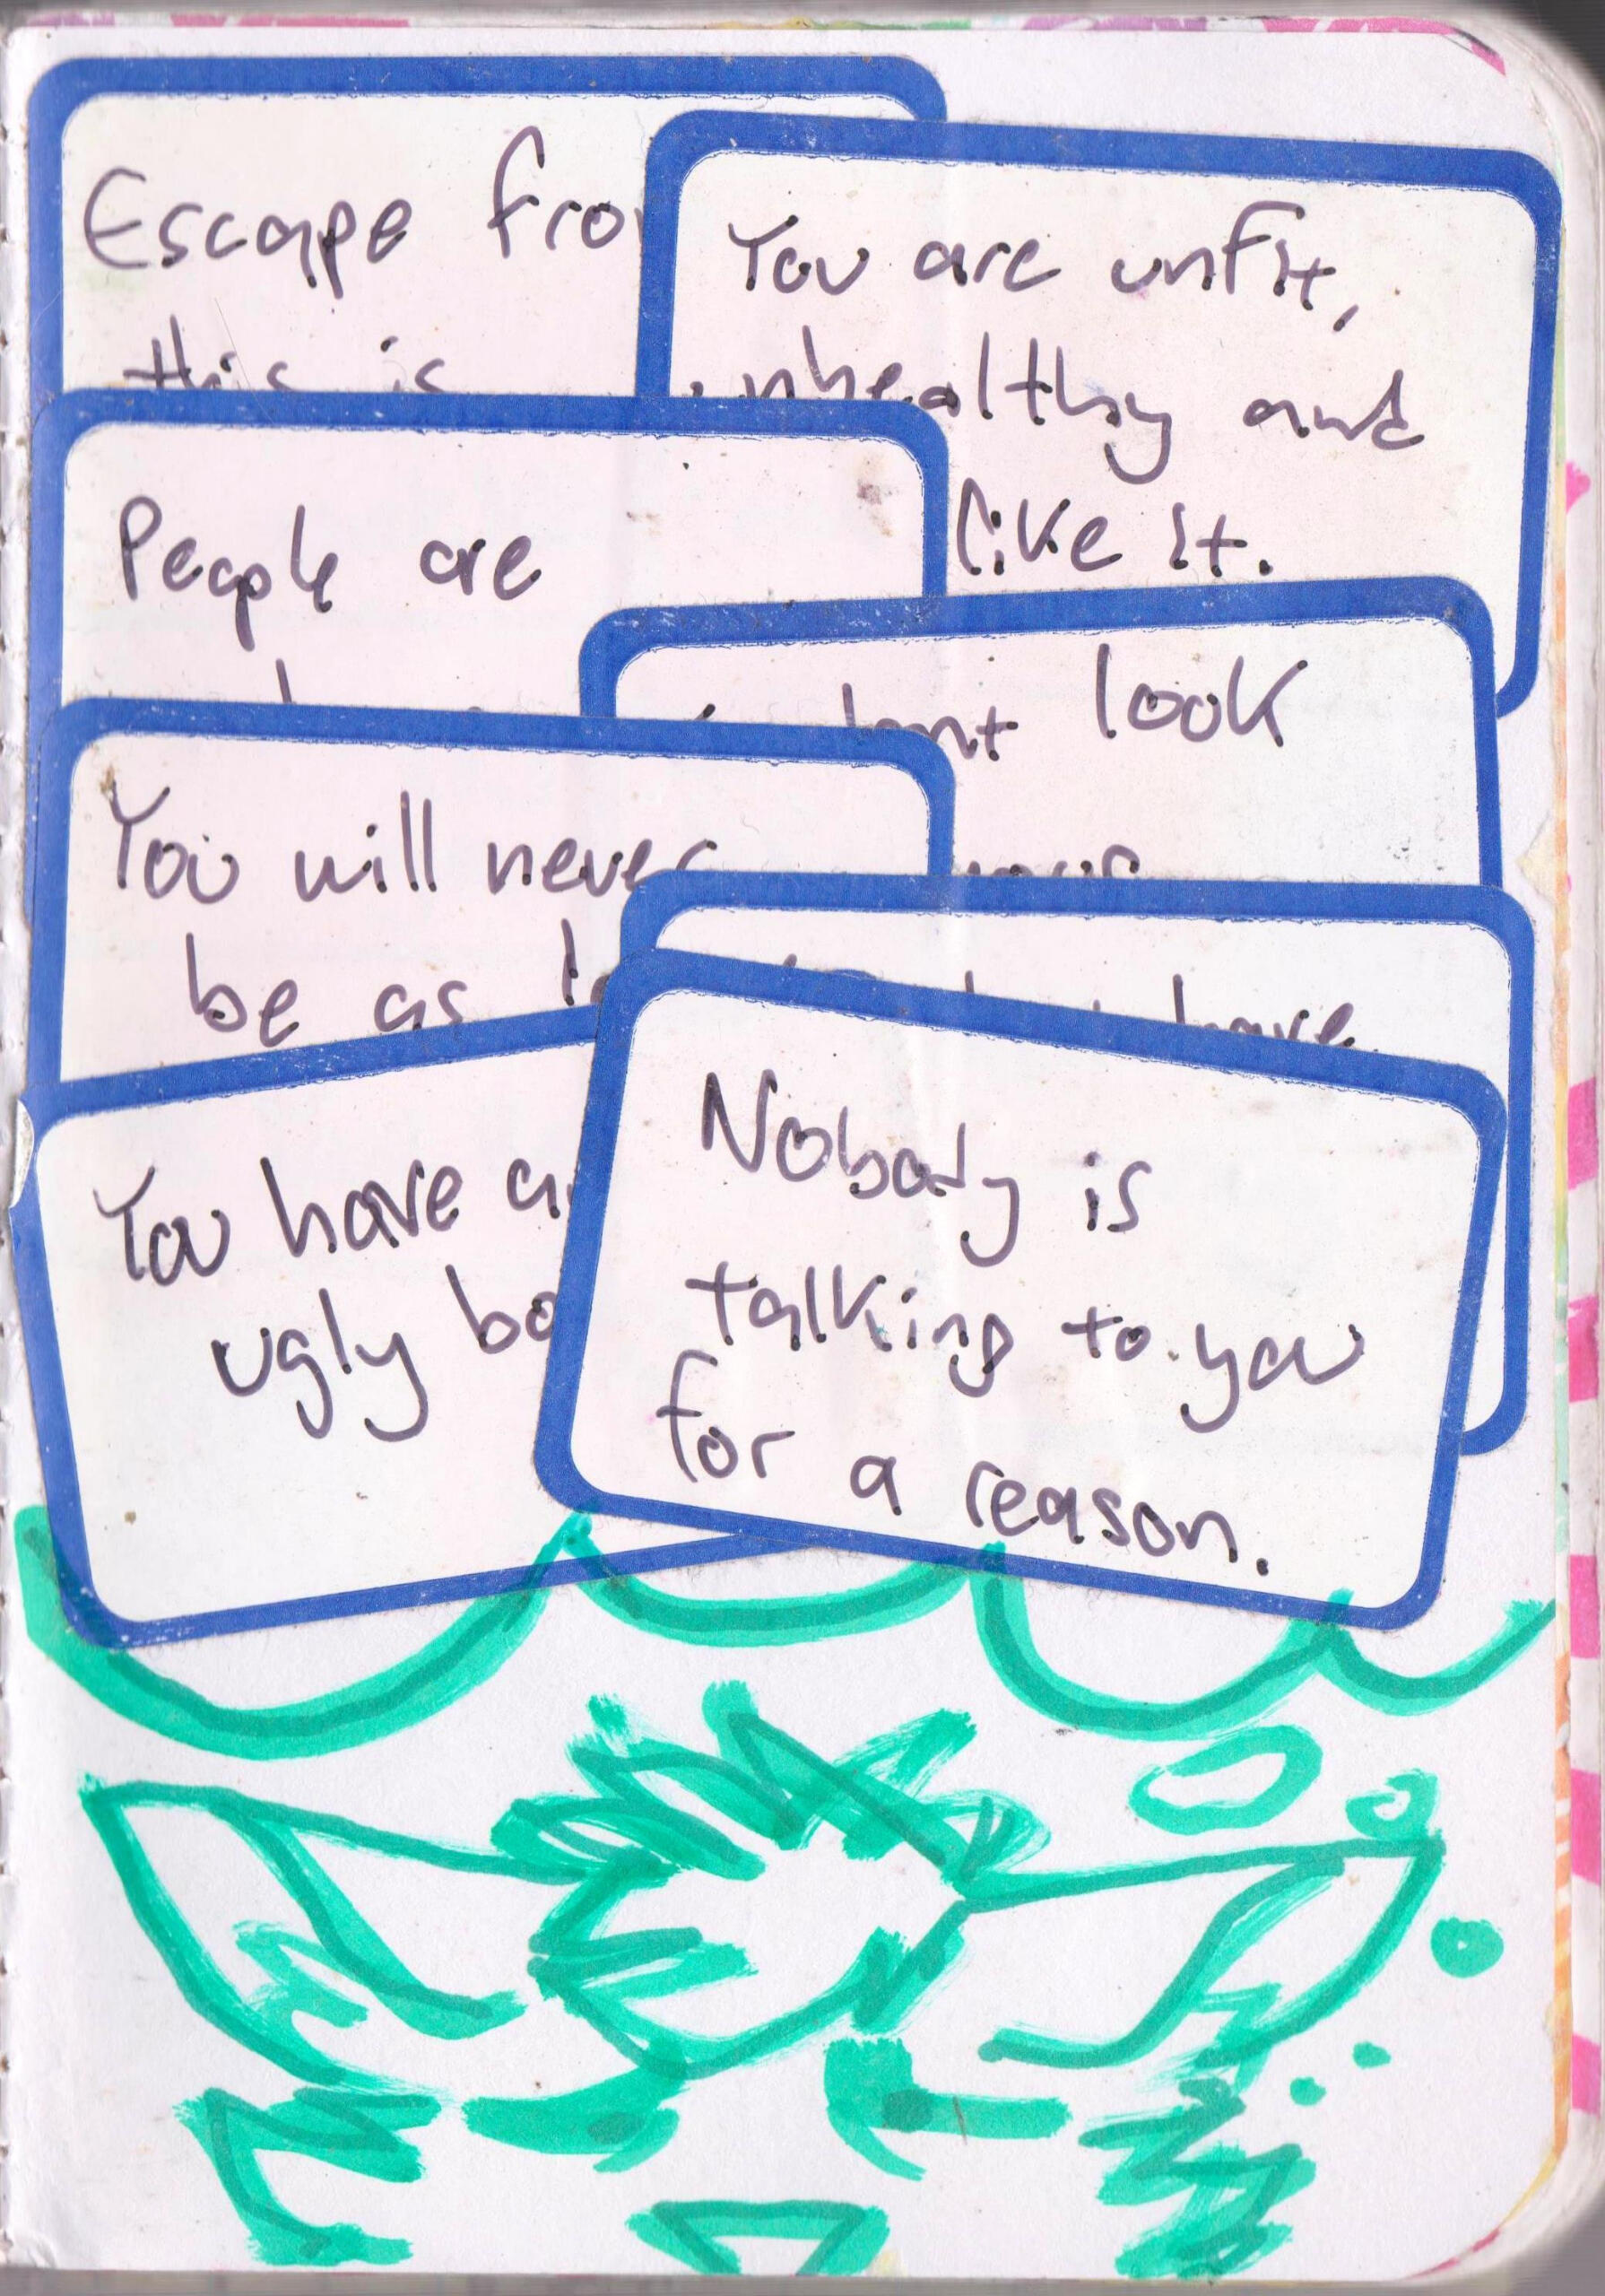 Escape
this is
You are unfit,
unhealthy and
like it.
People are
look
You will never
be as
have
You have
ugly
Nobody is
talking to you
for a reason.